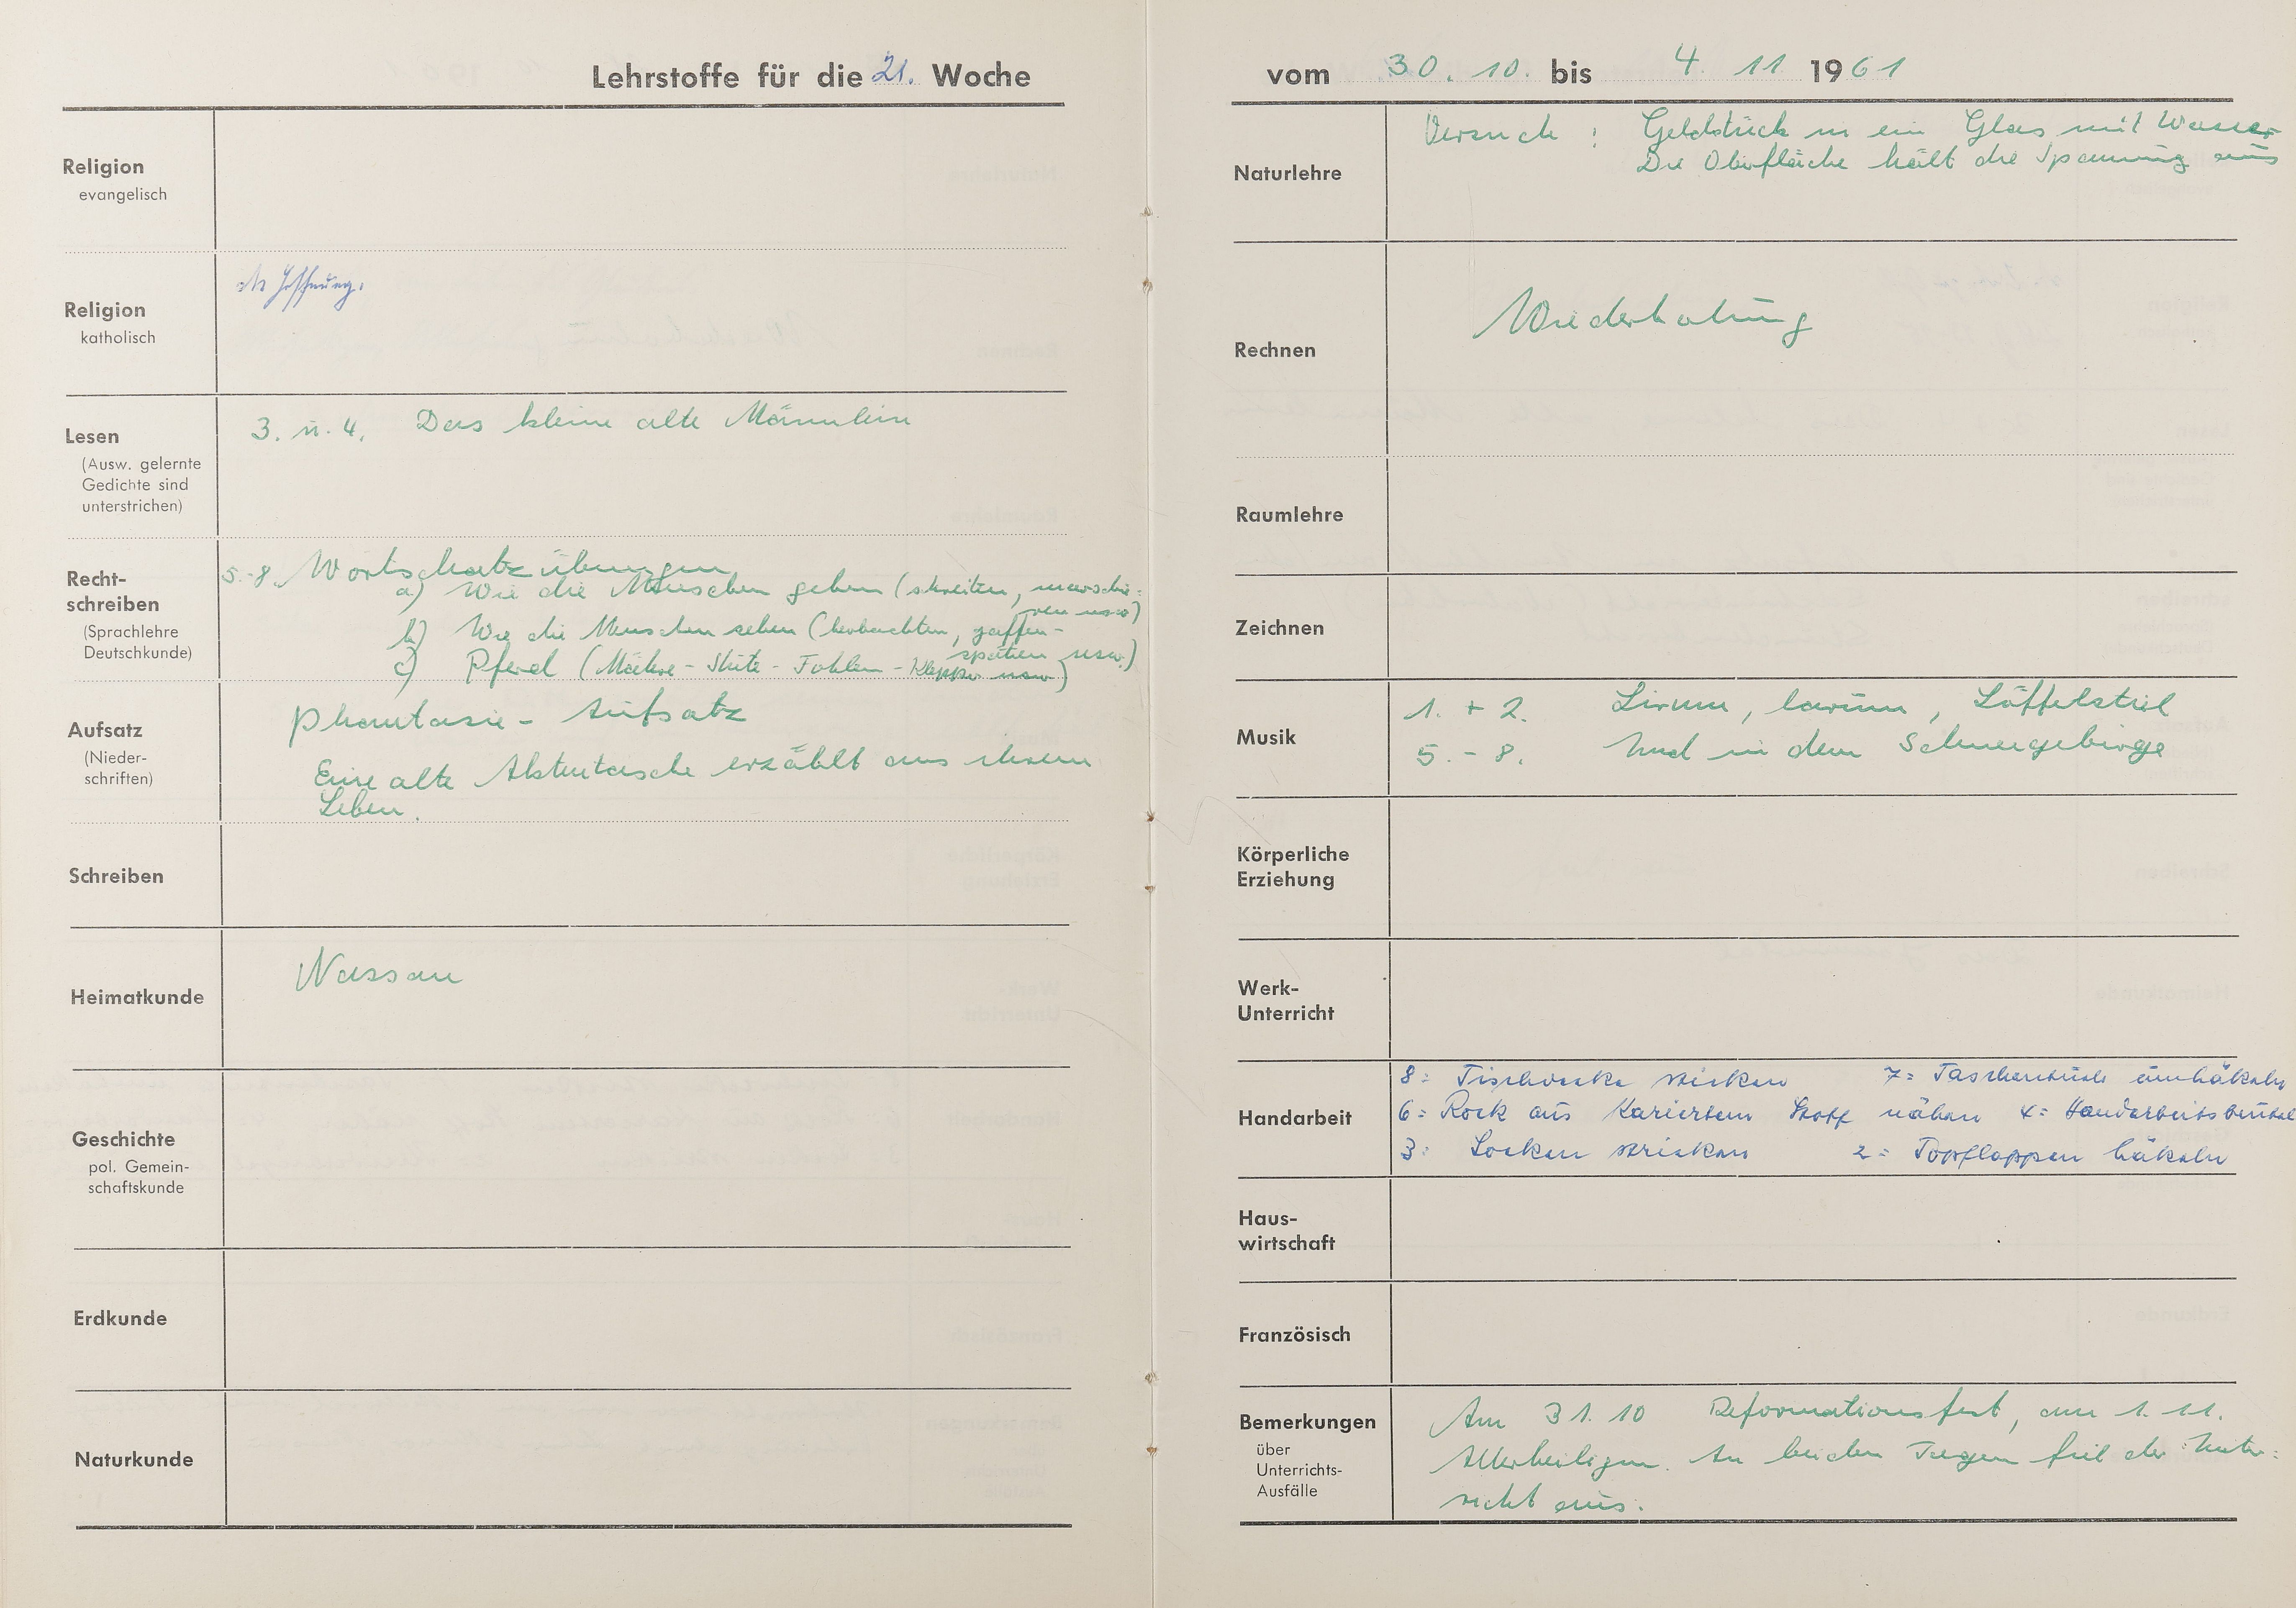 Lehrstoffe für die 21. Woche
Religion
evangelisch
Religion
katholisch
die Hoffnung.
Lesen
(Ausw. gelernte
Gedichte sind
unterstrichen)
3. u. 4. Das kleine alte Männlein
Recht-
schreiben
(Sprachlehre
Deutschkunde)
5.-8. Wortschatzübungen
a) Wie die Menschen gehen (schreiten, marschie=
ren usw)
b) Wie die Menschen sehen (beobachten, gaffen-
spähen usw.)
c) Pferd (Mähre - Stute - Fohlen - Klepper usw)
Aufsatz
(Nieder-
schriften)
Phantasie - Aufsatz
Eine alte Aktentasche erzählt aus ihrem
Leben.
Schreiben
Heimatkunde
Nassau
Geschichte
pol. Gemein-
schaftskunde
Erdkunde
Naturkunde
vom 30. 10. bis 4. 11 1961
Naturlehre
Versuch : Geldstück in ein Glas mit Wasser
Die Oberfläche hält die Spannung aus
Rechnen
Wiederholung
Raumlehre
Zeichnen
Musik
1. + 2. Lirum, larum, Löffelstiel
5. - 8. Und in dem Schneegebirge
Körperliche
Erziehung
Werk-
Unterricht
Handarbeit
8= Tischdecke sticken 7= Taschentuch umhäkeln
6= Rock aus kariertem Stoff nähen 4= Handarbeitsbeutel
3= Socken stricken 2= Topflappen häkeln
Haus-
wirtschaft
Französisch
Bemerkungen
über
Unterrichts-
Ausfälle
Am 31. 10 Reformationsfest, am 1. 11.
Allerheiligen. An beiden Tagen fiel der Unter=
richt aus.